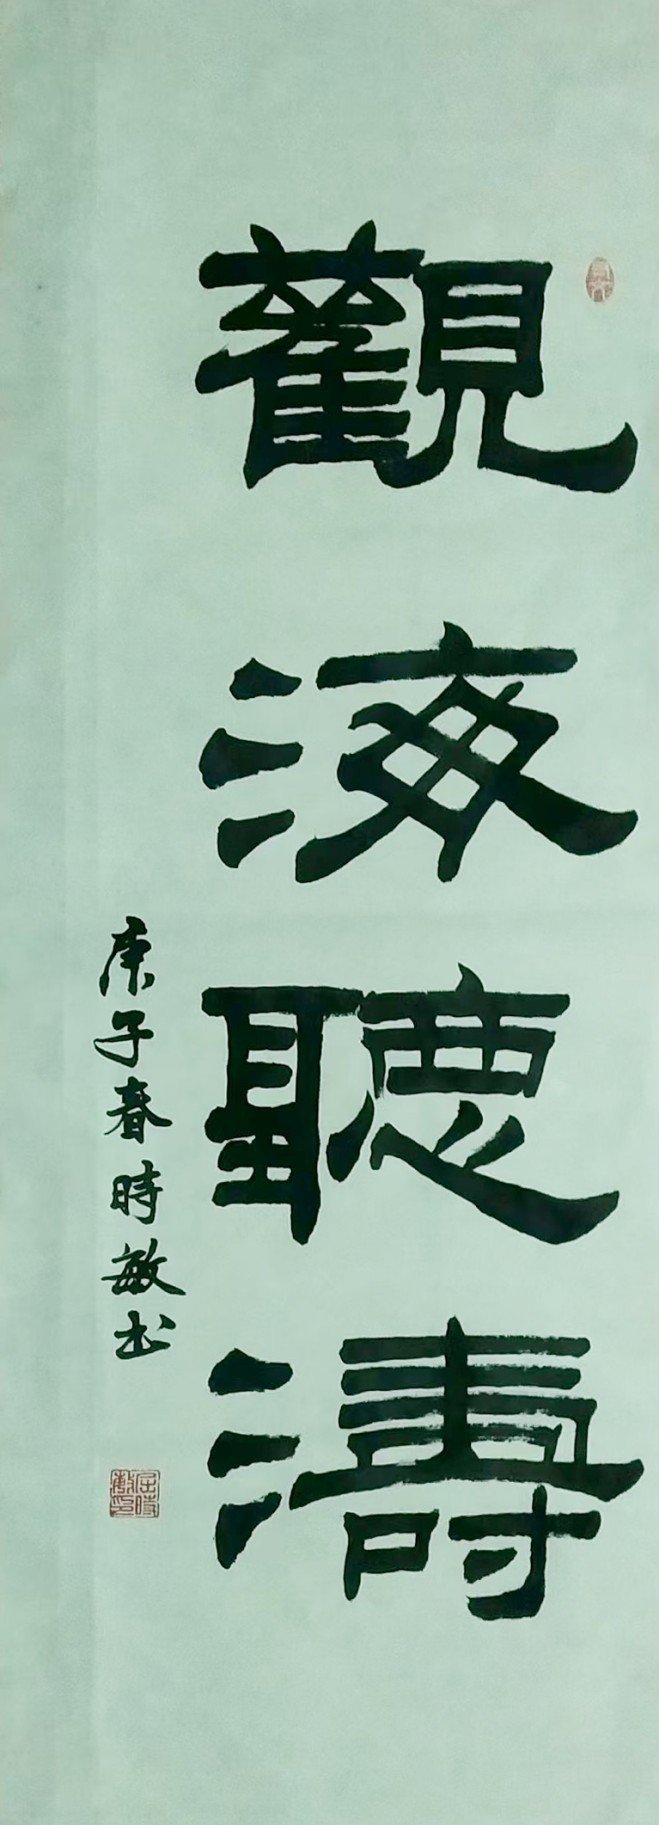 觀海聽濤
庚子春時敏书